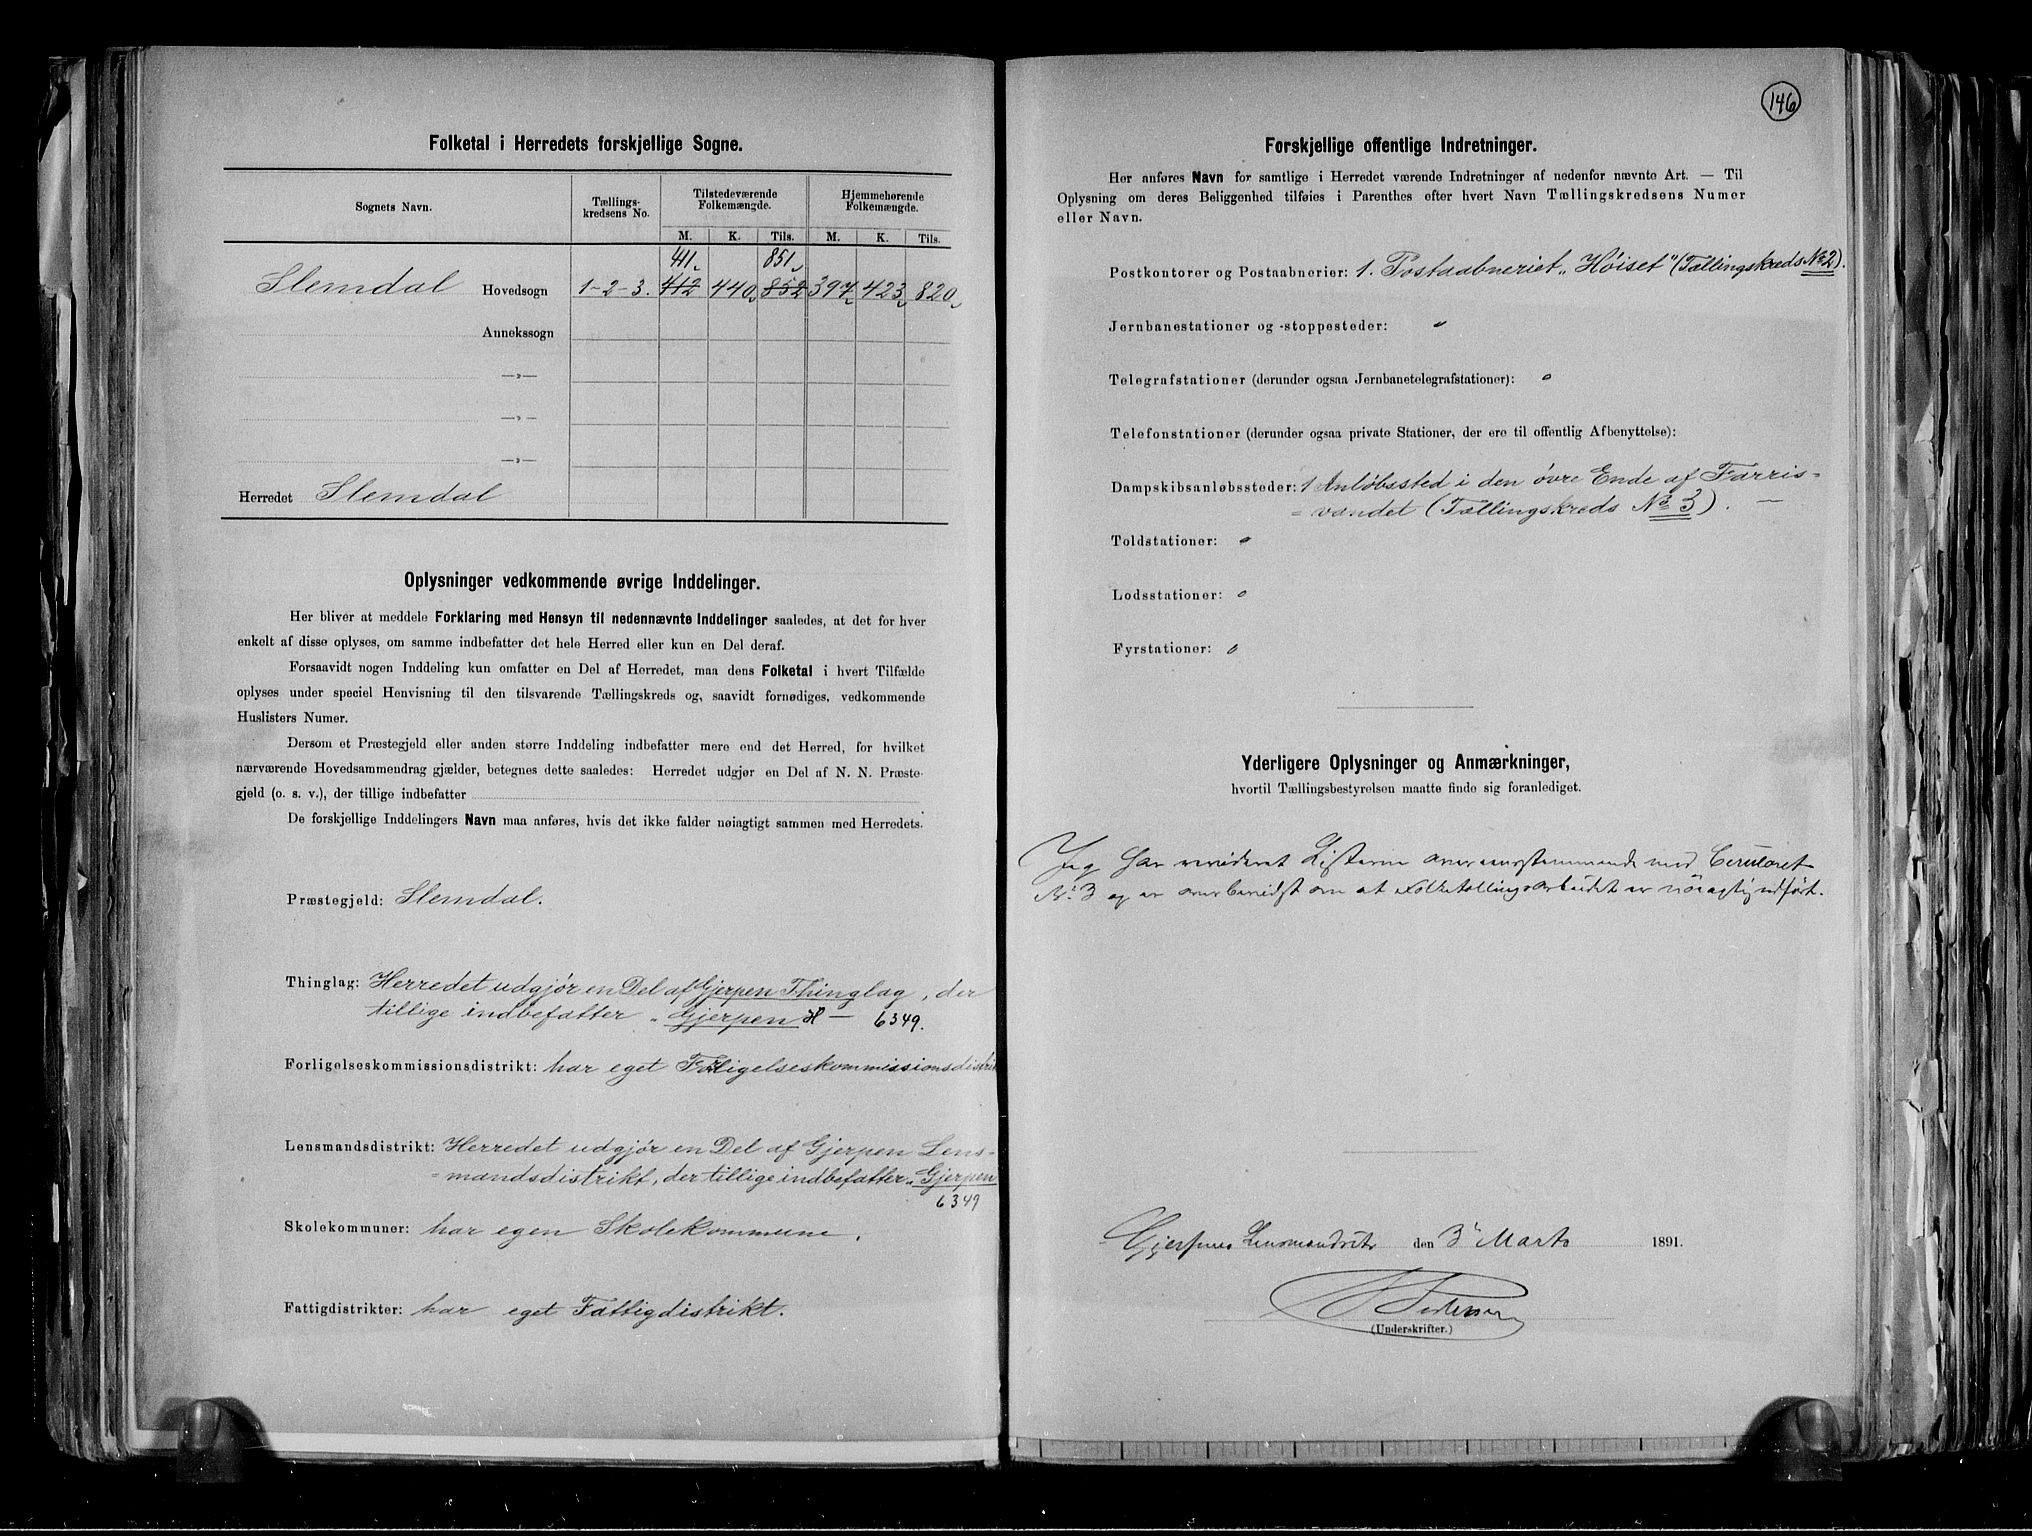 Folketal i Herredets forskjellige Sogne.
Sognets Navn.
Tællings-
kredsens No.
Tilstedeværende
Folkemængde.
Hjemmehørende
Folkemængde.
M. K. Tils. M. K. Tils.
411 851
Slemdal Hovedsogn 1-2-3. 412 440 852 397 423 820
Annekssogn
—»—
—»—
—»—
Herredet Slemdal
Oplysninger vedkommende øvrige Inddelinger.
Her bliver at meddele Forklaring med Hensyn til nedennævnte Inddelinger saaledes, at det for hver
enkelt af disse oplyses, om samme indbefatter det hele Herred eller kun en Del deraf.
Forsaavidt nogen Inddeling kun omfatter en Del af Herredet, maa dens Folketal i hvert Tilfælde
oplyses under speciel Henvisning til den tilsvarende Tællingskreds og, saavidt fornødiges, vedkommende
Huslisters Numer.
Dersom et Præstegjeld eller anden større Inddeling indbefatter mere end det Herred, for hvilket
nærværende Hovedsammendrag gjælder, betegnes dette saaledes: Herredet udgjør en Del af N. N. Præste-
gjeld (o. s. v.), der tillige indbefatter
De forskjellige Inddelingers Navn maa anføres, hvis det ikke falder nøiagtigt sammen med Herredets.
Præstegjeld: Slemdal.
Thinglag: Herredet udgjør en Del af Gjerpen Thinglag, der
tillige indbefatter „Gjerpen H — 6349.
Forligelseskommissionsdistrikt: har eget Forligelseskommissionsdistrikt
Lensmandsdistrikt: Herredet udgjør en Del af Gjerpen Lens-
=mandsdistrikt, der tillige indbefatter „Gjerpen
6349
Skolekommuner: har egen Skolekommune.
Fattigdistrikter: har eget Fattigdistrikt.
146
Forskjellige offentlige Indretninger.
Her anføres Navn for samtlige i Herredet værende Indretninger af nedenfor nævnte Art. — Til
Oplysning om deres Beliggenhed tilføies i Parenthes efter hvert Navn Tællingskredsens Numer
eller Navn.
Postkontorer og Postaabnerier: 1. Postaabneriet „Höiset" (Tællingskreds № 2).
Jernbanestationer og -stoppesteder: o
Telegrafstationer (derunder ogsaa Jernbanetelegrafstationer): o
Telefonstationer (derunder ogsaa private Stationer, der ere til offentlig Afbenyttelse):
Dampskibsanløbssteder: 1 Anløbssted i den øvre Ende af Farris-
=vandet (Tællingskreds № 3). —
Toldstationer: o
Lodsstationer: o
Fyrstationer: o
Yderligere Oplysninger og Anmærkninger,
hvortil Tællingsbestyrelsen maatte finde sig foranlediget.
Jeg har revideret Listerne overeensstemmende med Circulæret
No. 3 og er overbevidst om at Folketællingsarbeidet er nöiagtig udfört.
Gjerpens Lensmandsdts den 3' Marts 1891.
Pedersen
(Underskrifter.)